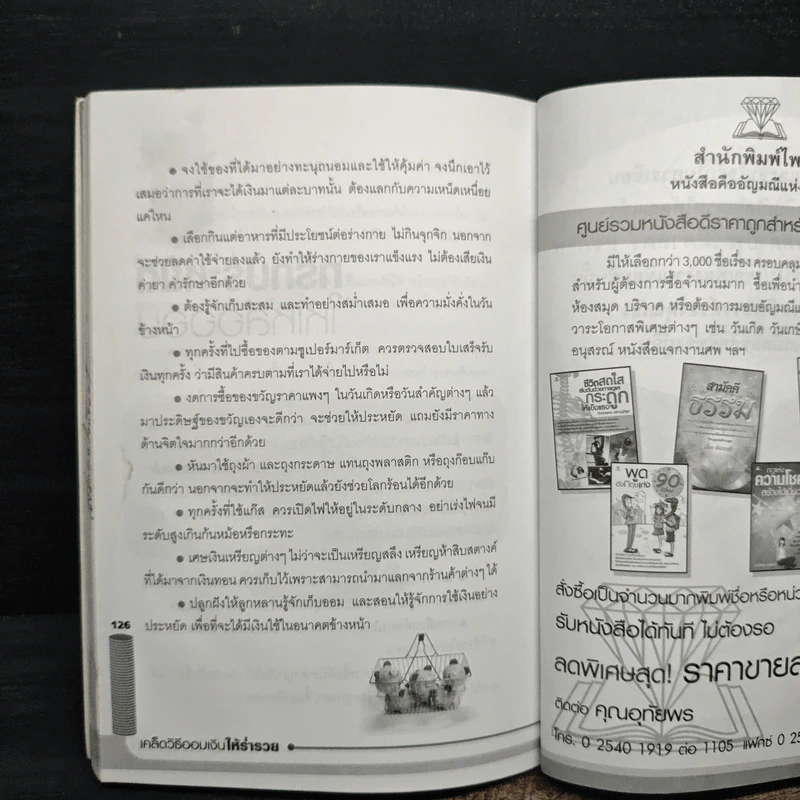 ● จงใช้ของที่ได้มาอย่างทะนุถนอมและใช้ให้คุ้มค่า จงนึกเอาไว้
เสมอว่าการที่เราจะได้เงินมาแต่ละบาทนั้น ต้องแลกกับความเหน็ดเหนื่อย
แค่ไหน
● เลือกกินแต่อาหารที่มีประโยชน์ต่อร่างกาย ไม่กินจุกจิก นอกจาก
จะช่วยลดค่าใช้จ่ายลงแล้ว ยังทำให้ร่างกายของเราแข็งแรง ไม่ต้องเสียเงิน
ค่ายา ค่ารักษาอีกด้วย
● ต้องรู้จักเก็บสะสม และทำอย่างสม่ำเสมอ เพื่อความมั่งคั่งในวัน
ข้างหน้า
● ทุกครั้งที่ไปซื้อของตามซูเปอร์มาร์เก็ต ควรตรวจสอบใบเสร็จรับ
เงินทุกครั้ง ว่ามีสินค้าครบตามที่เราได้จ่ายไปหรือไม่
● งดการซื้อของขวัญราคาแพงๆ ในวันเกิดหรือวันสำคัญต่างๆ แล้ว
มาประดิษฐ์ของขวัญเองจะดีกว่า จะช่วยให้ประหยัด แถมยังมีราคาทาง
ด้านจิตใจมากกว่าอีกด้วย
● หันมาใช้ถุงผ้า และถุงกระดาษ แทนถุงพลาสติก หรือถุงก๊อบแก๊บ
กันดีกว่า นอกจากจะทำให้ประหยัดแล้วยังช่วยโลกร้อนได้อีกด้วย
● ทุกครั้งที่ใช้แก๊ส ควรเปิดไฟให้อยู่ในระดับกลาง อย่าเร่งไฟจนมี
ระดับสูงเกินก้นหม้อหรือกระทะ
● เศษเงินเหรียญต่างๆ ไม่ว่าจะเป็นเหรียญสลึง เหรียญห้าสิบสตางค์
ที่ได้มาจากเงินทอน ควรเก็บไว้เพราะสามารถนำมาแลกจากร้านค้าต่างๆ ได้
● ปลูกฝังให้ลูกหลานรู้จักเก็บออม และสอนให้รู้จักการใช้เงินอย่าง
ประหยัด เพื่อที่จะได้มีเงินใช้ในอนาคตข้างหน้า
126
เคล็ดวิธีออมเงินให้ร่ำรวย
สำนักพิมพ์ไพ
หนังสือคืออัญมณีแห่ง
ศูนย์รวมหนังสือดีราคาถูกสำหร
มีให้เลือกกว่า 3,000 ชื่อเรื่อง ครอบคลุม
สำหรับผู้ต้องการซื้อจำนวนมาก ซื้อเพื่อนำ
ห้องสมุด บริจาค หรือต้องการมอบอัญมณีแ
วาระโอกาสพิเศษต่างๆ เช่น วันเกิด วันเกษ
อนุสรณ์ หนังสือแจกงานศพ ฯลฯ
ชีวิตสดใส
กระดูก
สามัคคี
ธรรม
พูด
90
ความโชค
สั่งซื้อเป็นจำนวนมากพิมพ์ชื่อหรือหน่ว
รับหนังสือได้ทันที ไม่ต้องรอ
ลดพิเศษสุด! ราคาขายส
ติดต่อ คุณอุทัยพร
โทร. 0 2540 1919 ต่อ 1105 แฟ็กซ์ 0 25